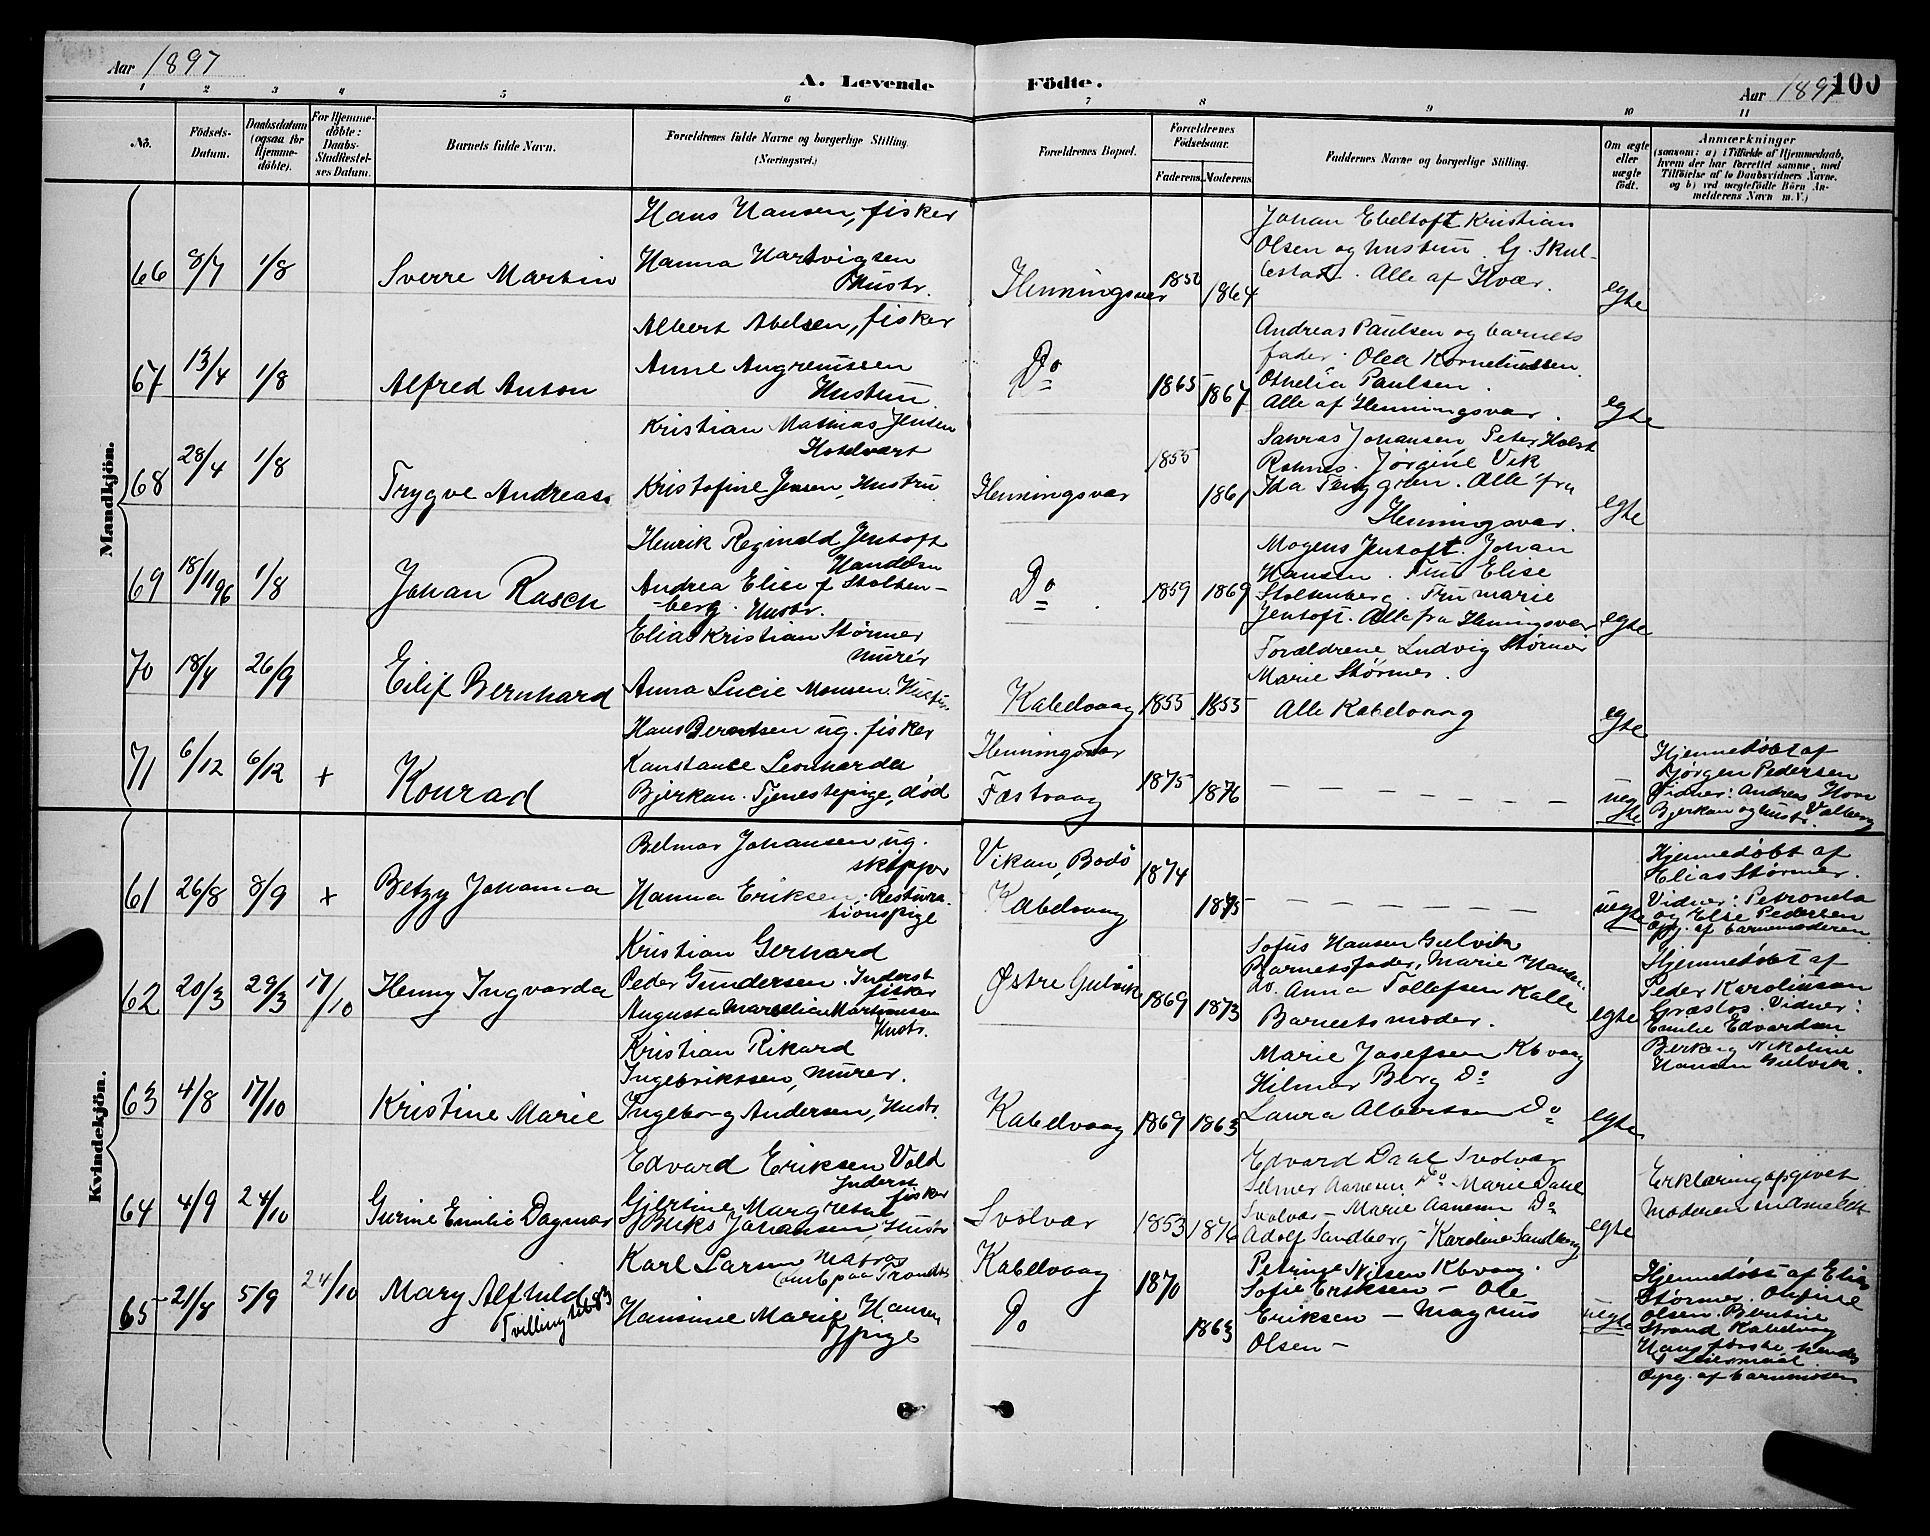 Aar 1897
A. Levende
Födte.
Aar 1897
100
1 2 3 4 5 6 7 8 9 10 11
No.
Födsels-
Datum.
Daabsdatum
(ogsaa for
Hjemme-
döbte).
For Hjemme-
döbte:
Daabs-
Stadfæstel-
ses Datum.
Barnets fulde Navn.
Forældrenes fulde Navne og borgerlige Stilling.
(Næringsvei.)
Forældrenes Bopæl.
Forældrenes
Födselsaar.
Faderens. Moderens.
Faddernes Navne og borgerlige Stilling.
Om ægte
eller
uægte
födt.
Anmærkninger
(saasom: a) i Tilfælde af Hjemmedaab,
hvem der har forrettet samme, med
Tilföielse af to Daabsvidners Navne,
og b) ved uægtefödte Börn An-
melderens Navn m. V.)
Mandkjön.
66 8/7 1/8
Sverre Martin
Hans Hansen, fisker
Hanna Hartvigsen
Hustr.
Henningsvær
1850
1864
Johan Ebeltoft Kristian
Olsen og hustru. G. Skul-
bestad. Alle af Hvær.
egte
67 13/4 1/8
Alfred Anton
Albert Abelsen, fisker
Anne Angremssen
Hustru
Do
1865
1867
Andreas Paulsen og barnets
fader. Olea Korneliussen.
Othelia Paulsen.
Alle af Henningsvær.
egte
68 28/4 1/8
Trygve Andreas
Kristian Mathias Jensen
Hotelvært
Kristofine Jensen, Hustru
Henningsvær
1855
1861
Johansen Peter Holst
Jørgine Vik
Ida Tenggren. Alle fra
Henningsvær.
egte
69 18/11 96 1/8
Johan Rasch
Henrik Reginald Jentoft
Handelsm
Andrea Elise f Stolten-
berg. Hustr.
Do
1859
1869
Mogens Jentoft. Johan
Hansen. Fru Elise
Stoltenberg. Fru marie
Jentoft. Alle fra Heningsvær
egte
70 18/4 26/9
Eilif Bernhard
Elias Kristian Størmer
murer
Anna Lucie Monsen. Hustru
Kabelvaag
1855
1855
Forældrene Ludvig Størmer
Marie Størmer.
Alle Kabelvaag
egte
71 6/12 6/12 +
Konrad
Hans Berntsen ug. fisker
Konstance Leonharda
Bjerkan. Tjenestepige, død
Henningsvær
Festvaag
1875
1876
— — — — — — —
uegte
Hjemmedøbt af
Jørgen Pedersen
Vidner: Andreas
Bjerkan og hustr. Valberg
Kvindekjön.
61 26/8 8/9 +
Betzy Johanna
Belmar Johansen ug.
skipper
Hanna Eriksen. Restura-
tionspige
Vikan, Bodö
Kabelvaag
1874
1875
— — — — — — —
uegte
Hjemmedøbt af
Elias Størmer.
Vidner: Petronela
og Else Pedersen
Opg. af barnemoderen
62 20/3 29/3 17/10
Henny Ingvarda
Kristian Gerhard
Peder Gundersen. Inderst
fisker
Augusta Marselia Martinussen
Hustr.
Østre Gulvik
1869
1873
Sofus Hansen Gulvik
Barnetsfader, Marie Hansen
Do. Anna Tollefsen Kalle
Barnetsmoder.
egte
Hjemmedøbt af
Peder Karolinson
Græslos. Vidner:
Emilie Edvardsen
Nikoline
Hansen Gulvik.
63 4/8 17/10
Kristine Marie
Kristian Rikard
Ingebriktsen, murer.
Ingeborg Andersen, Hustr.
Kabelvaag
1869
1863
Marie Josefsen Kbvaag
Hilmar Berg Do
Laura Albertsen Do
egte
64 4/9 24/10
Gurine Emilie Dagmar
Edvard Eriksen Vold
Inderst
fisker
Gjertine Margrethe
Buks Johansen, Hustr
Svolvær
1853
1876
Edvard Dahl Svolvær
Selmer Aanesen Do Marie Dahl
Svolvær – Marie Aanesen Do
Adolf Sandberg – Karoline Sandberg
egte
Erklæring afgivet
Moderen indmeldt
65 21/8 5/9 24/10
Mary Alfhild
Tvilling
Karl Larsen Matros
ombpaa Trondhj
Hansine Marie Hansen
Tjpige
Kabelvaag
Do
1870
1863
Petrine Nilsen Kbvaag.
Sofie Eriksen – Ole
Eriksen – Magnus
Olsen –
uegte
Hjemmedøbt af Elias
Størmer.
Olsen. Berntine
Strand Kabelvaag
Hans første hendes
Leiermaal.
Opg. af barnemoderen